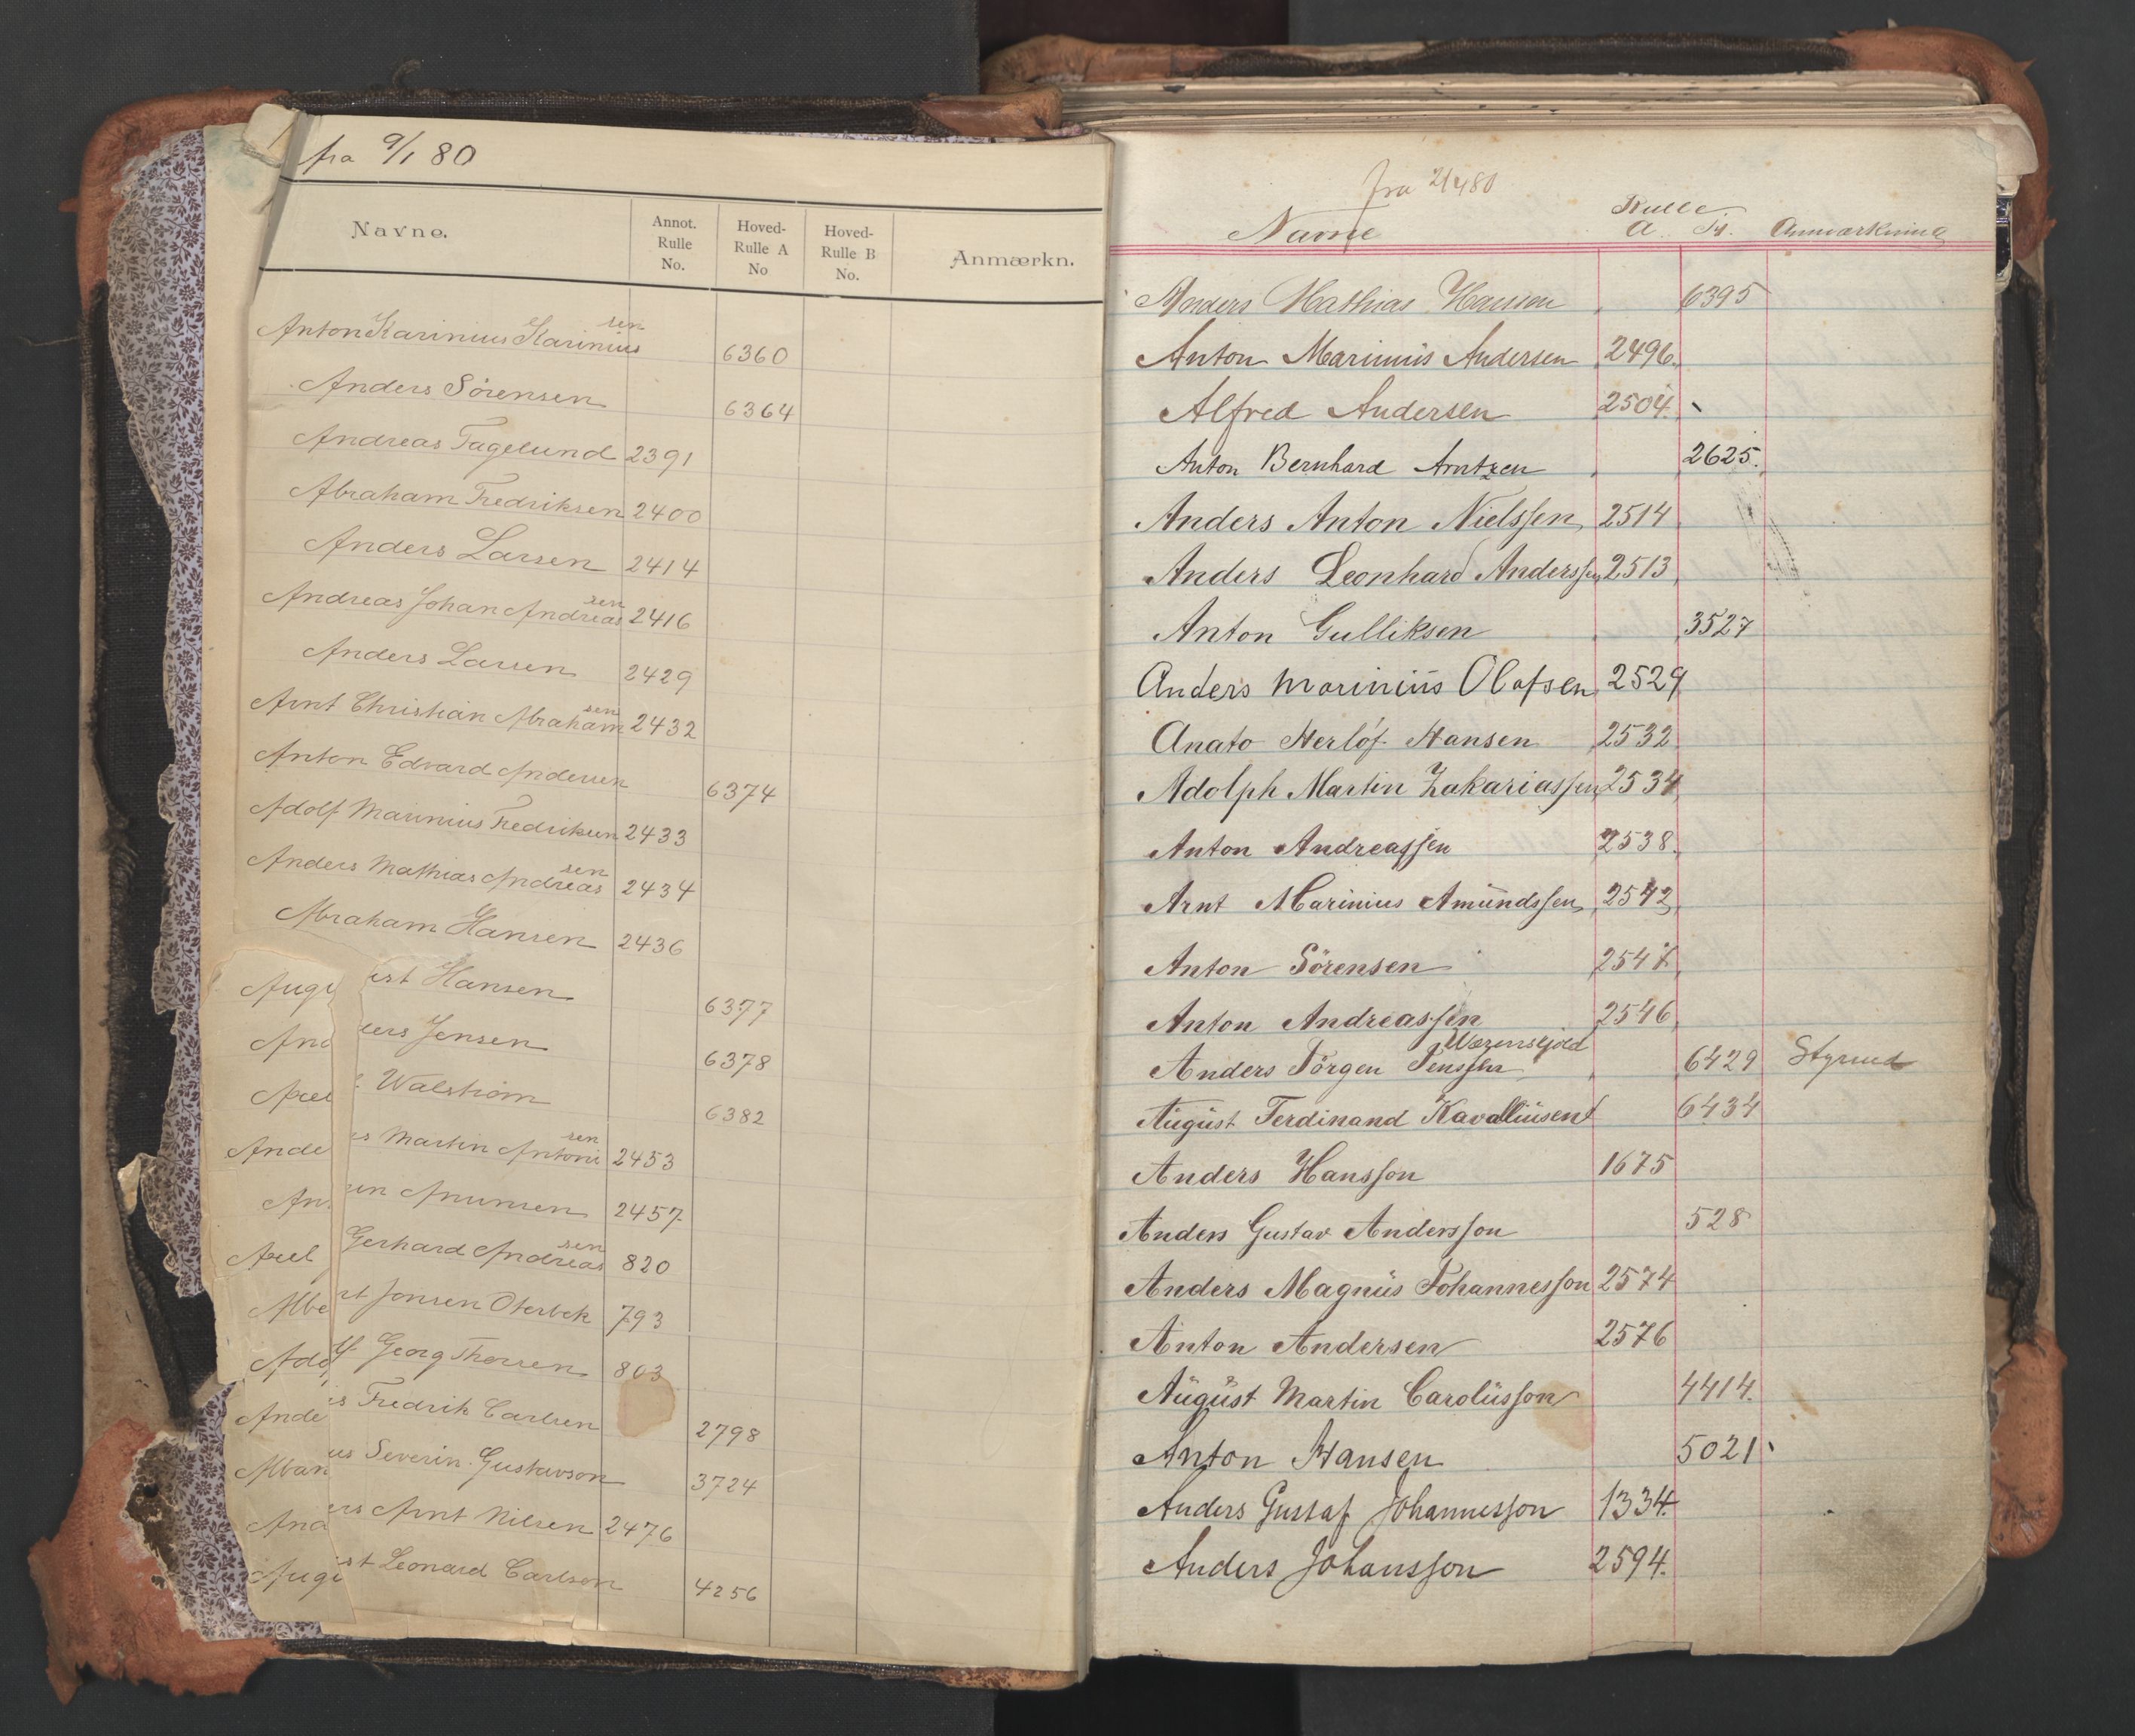 fra 9/1 80
Navne. Annot. Rulle No. Hoved-Rulle A No Hoved-Rulle B No. Anmærkn.
Anton Karinius Kariniussen 6360
Anders Sörensen 6364
Andreas Fagelund 2391
Abraham Fredriksen 2400
Anders Larsen 2414
Andreas Johan Andreassen 2416
Anders Larsen 2429
Arnt Christian Abrahamsen 2432
Anton Edvard Andersen 6374
Adolf Marinius Fredriksen 2433
Anders Mathias Andreassen 2434
Abraham Hansen 2436
August Hansen 6377
Anders Jensen 6378
Axel Walström 6382
Anders Martin Antonisen 2453
2457
Axel Gerhard Andreassen 820
Albert Jonsen Oterbek 793
Adolf Georg Thorsen 803
Anders Fredrik Carlsen 2798
Albanus Severin Gustavson 3724
Anders Arnt Nilsen 2476
August Leonard Carlson 4256
fra 21480
Rulle
Navne A. Anmærkning
Anders Mathias Hansen 6395
Anton Marinius Andersen 2496.
Alfred Andersen 2504.
Anton Bernhard Arntzen 2625.
Anders Anton Nielssen 2514
Anders Leonhard Anderssen 2513
Anton Gulliksen 3527
Anders Marinius Olafsen 2529
Anato Herlóf Hansen 2532
Adolph Martin Zakariassen 2534
Anton Andreassen 2538.
Arnt Marinius Amundssen 2542
Anton Sörensen
Anton Andreassen 2546
Anders Jörgen Jenssen 6429 Styrmd
August Ferdinand Kavalliusen 6434
Anders Hansson 1675
Anders Gustav Andersson 528
Anders Magnus Johannesson 2574
Anton Andersen 2576
August Martin Carolusson 4414.
Anton Hansen 5021
Anders Gustaf Johannesson 1334.
Anders Johansson 2594.